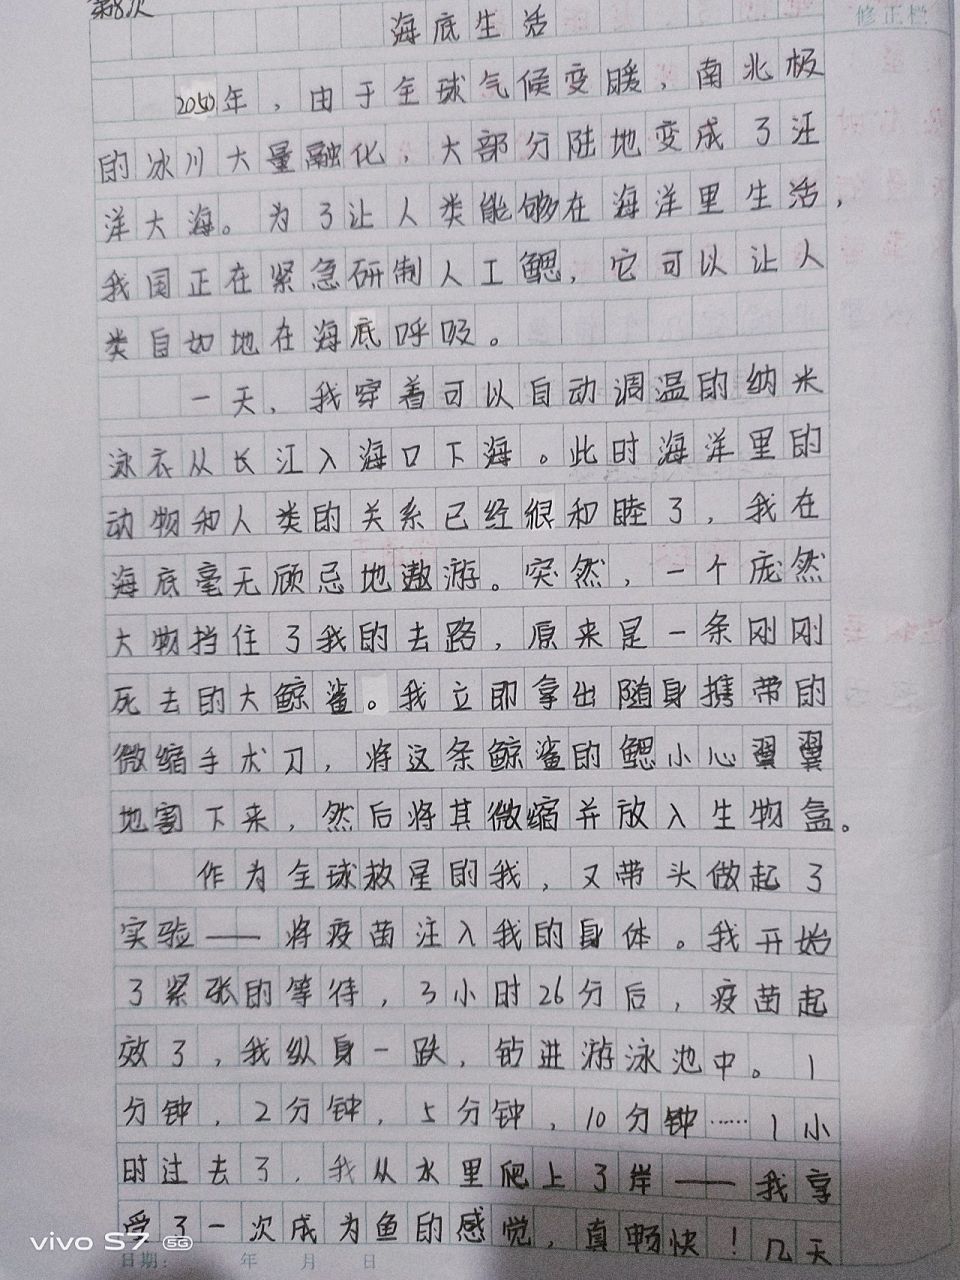 第8次
修正栏
海底生活
2050年，由于全球气候变暖，南北极
的冰川大量融化，大部分陆地变成了汪
洋大海。为了让人类能够在海洋里生活，
我国正在紧急研制人工鳃，它可以让人
类自如地在海底呼吸。
一天，我穿着可以自动调温的纳米
泳衣从长江入海口下海。此时海洋里的
动物和人类的关系已经很和睦了，我在
海底毫无顾忌地遨游。突然，一个庞然
大物挡住了我的去路，原来是一条刚刚
死去的大鲸鲨。我立即拿出随身携带的
微缩手术刀，将这条鲸鲨的鳃小心翼翼
地割下来，然后将其微缩并放入生物盒。
作为全球救星的我，又带头做起了
实验——将疫苗注入我的身体。我开始
了紧张的等待，3小时26分后，疫苗起
效了，我纵身一跌，钻进游泳池中。1
分钟，2分钟，5分钟，10分钟……1小
时过去了，我从水里爬上了岸——我享
受了一次成为鱼的感觉，真畅快！几天
vivo S7 5G
日期： 年 月 日